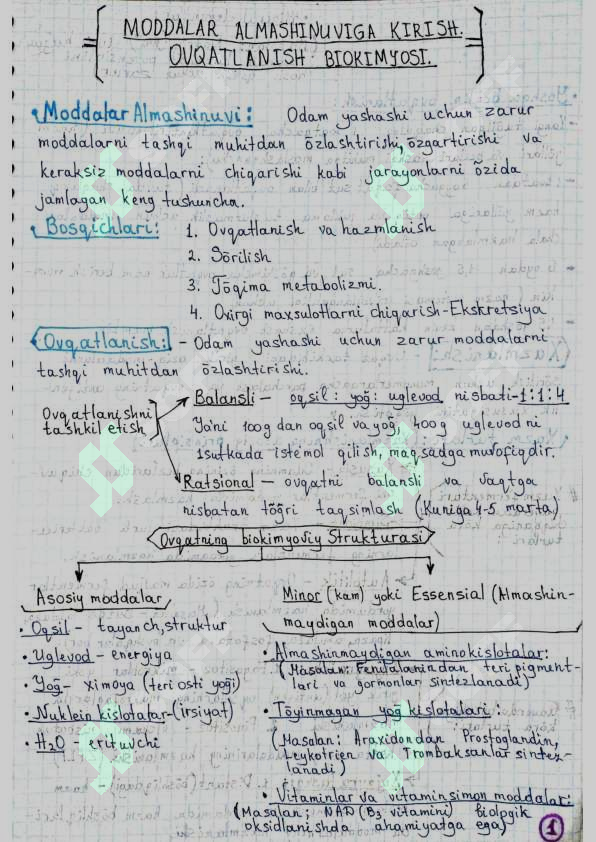 MODDALAR ALMASHINUVIGA KIRISH.
OVQATLANISH BIOKIMYOSI.
• Moddalar Almashinuvi: Odam yashashi uchun zarur
moddalarni tashqi muhitdan õzlashtirishi, õzgartirishi va
keraksiz moddalarni chiqarishi kabi jarayonlarni õzida
jamlagan keng tushuncha.
• Bosqichlari: 1. Ovqatlanish va hazmlanish
2. Sõrilish
3. Tõqima metabolizmi.
4. Oxirgi maxsulotlarni chiqarish-Ekskretsiya
Ovqatlanish: - Odam yashashi uchun zarur moddalarni
tashqi muhitdan õzlashtirishi.
Ovqatlanishni
tashkil etish
Balansli - oqsil : yoğ : uglevod nisbati-1:1:4
Ya'ni 100g dan oqsil va yoğ, 400g uglevod ni
1sutkada istemol qilish, maqsadga muvofiqdir.
Ratsional - ovqatni balansli va vaqtga
nisbatan tõğri taqsimlash (Kuniga 4-5 marta)
Ovqatning biokimyoviy Strukturasi
Asosiy moddalar
• Oqsil - tayanch, struktur
• Uglevod - energiya
• Yoğ - ximoya (teri osti yoği)
• Nuklein kislotalar - (irsiyat)
• H₂O - erituvchi
Minor (kam) yoki Essensial (Almashin-
maydigan moddalar)
• Almashinmaydigan aminokislotalar:
(Masalan: Fenilalanindan teri pigment-
lari va gormonlar sintezlanadi)
• Tõyinmagan yoğ kislotalari :
(Masalan; Araxidondan Prostoglandin,
Leykotrien va Tromboksanlar sintez-
lanadi)
• Vitaminlar va vitaminsimon moddalar:
(Masalan; NAD (B₃ vitamini) biologik
oksidlanishda ahamiyatga ega)
1